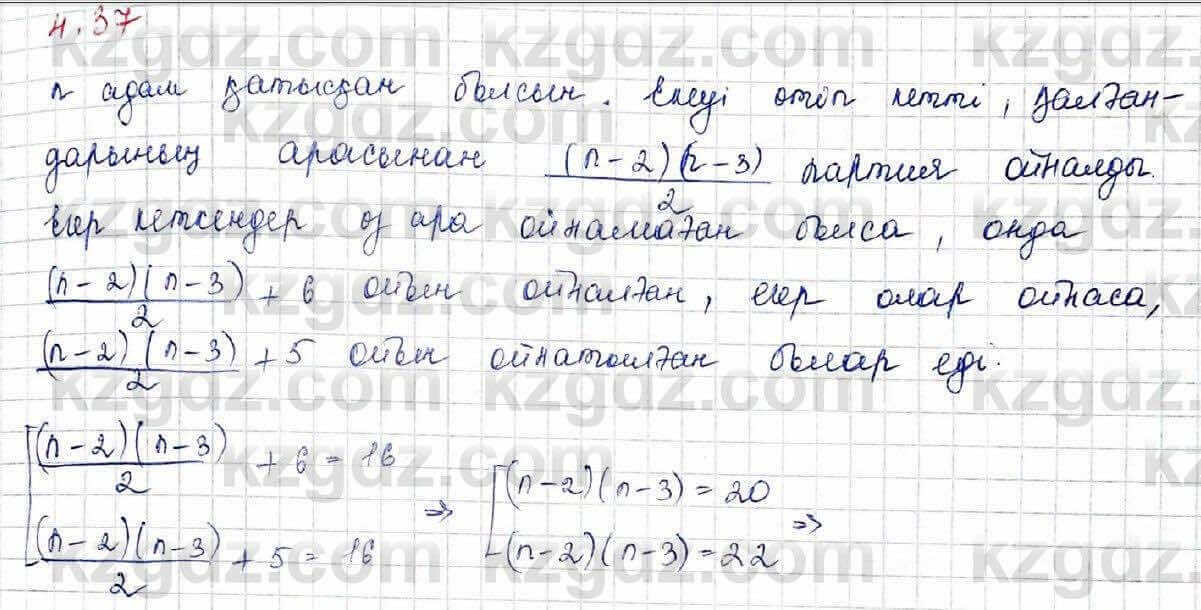 4.37
n адам қатысқан болсын. Екеуі өтіп кетті, қалған-
дарының арасынан (n-2)(n-3)/2 партия ойналды.
Егер кеткендер өз ара ойнамаған болса, онда
(n-2)(n-3)/2 + 6 ойын ойналған, егер олар ойнаса,
(n-2)(n-3)/2 + 5 ойын ойнатылған болар еді.
[(n-2)(n-3)/2 + 6 = 16 ⇒ [(n-2)(n-3) = 20
(n-2)(n-3)/2 + 5 = 16 (n-2)(n-3) = 22 ⇒
kzgdz.com